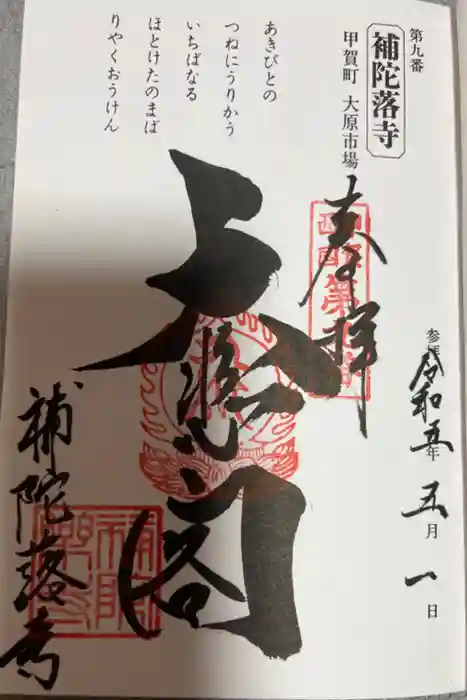 第九番
補陀落寺
甲賀町 大原市場
あきびとの
つねにうりかう
いちばなる
ほとけたのまば
りやくおうけん
奉拝
大悲閣
補陀落寺
参拝 令和五年 五月 一日